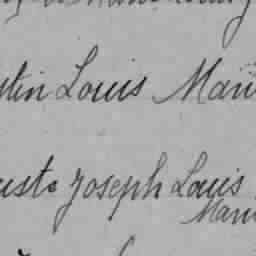 stin Louis Mari
uste Joseph Louis
Mari